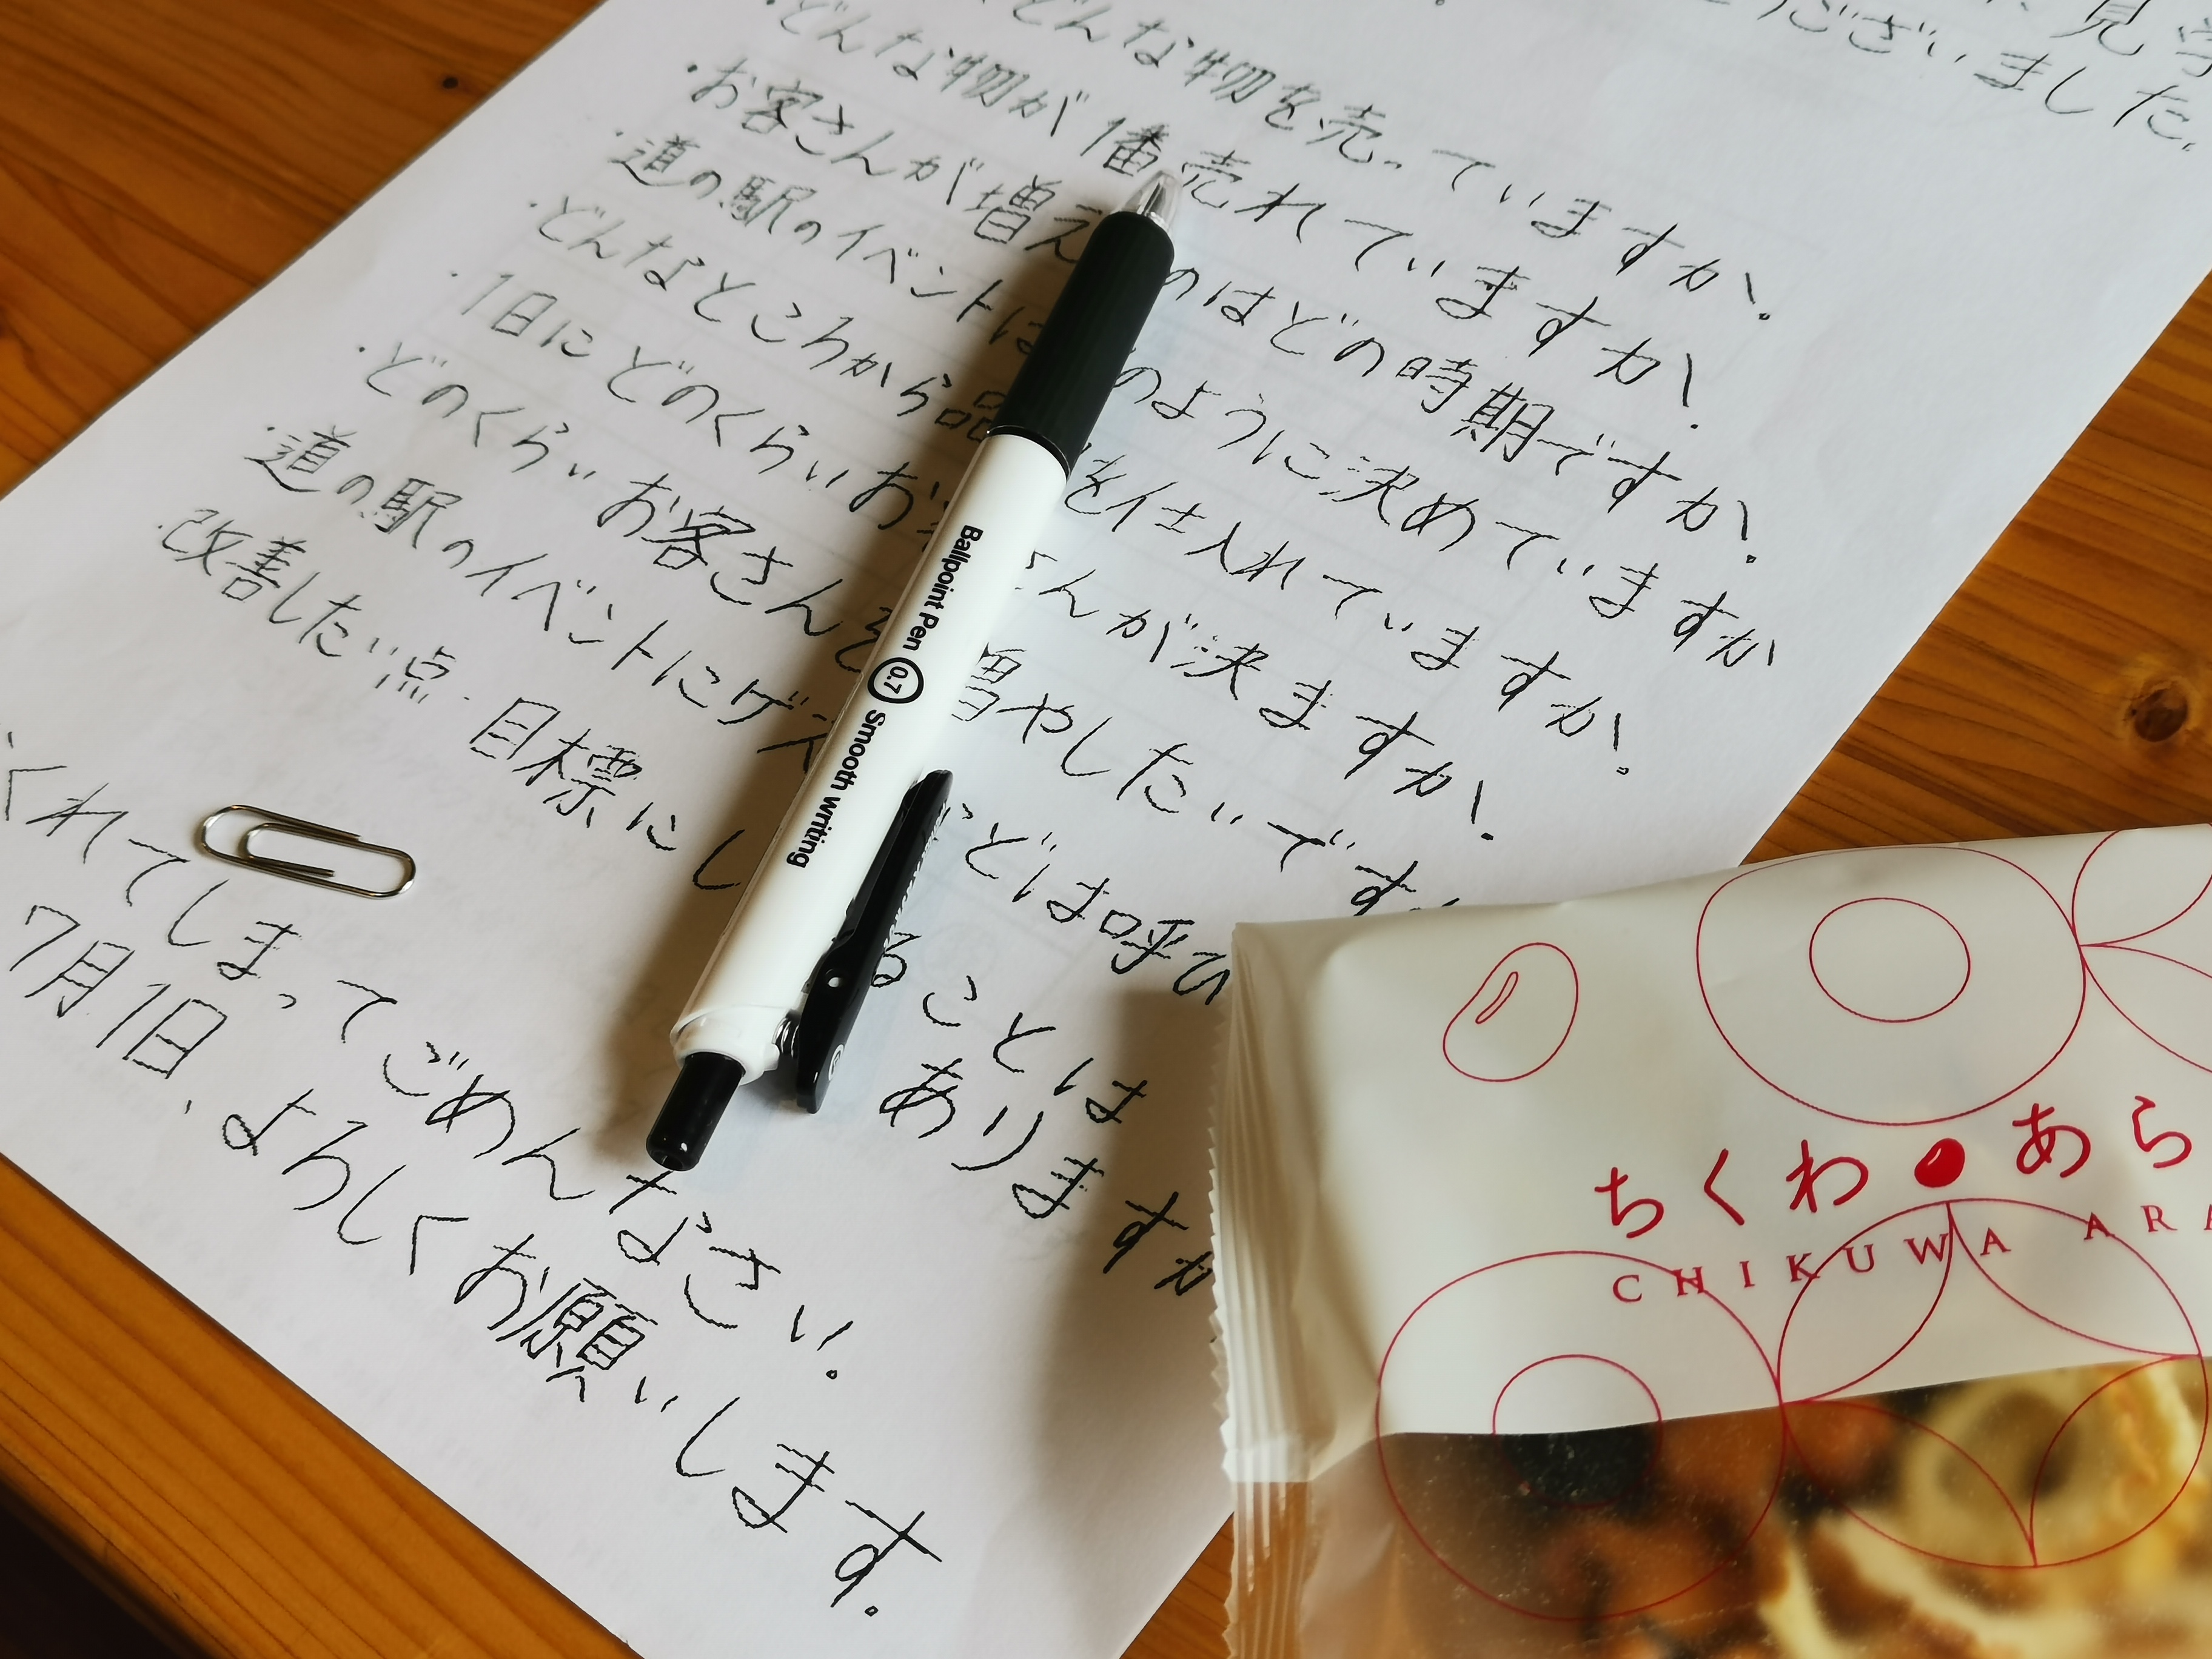 見学
ございました
どんな物を売っていますか。
・どんな物が1番売れていますか。
・お客さんが増え のはどの時期ですか。
・道の駅のイベントは のように決めていますか
・どんなところから品 を仕入れていますか。
・1日にどのくらいお さんが決ますか。
・どのくらいお客さんを増やしたいです
・道の駅のイベントにゲス などは呼び
・改善したい点・目標にし ることは
ありますか
くれてしまってごめんなさい。
7月1日、よろしくお願いします。
Ballpoint Pen 0.7 Smooth writing
ちくわ●あら
CHIKUWA ARA